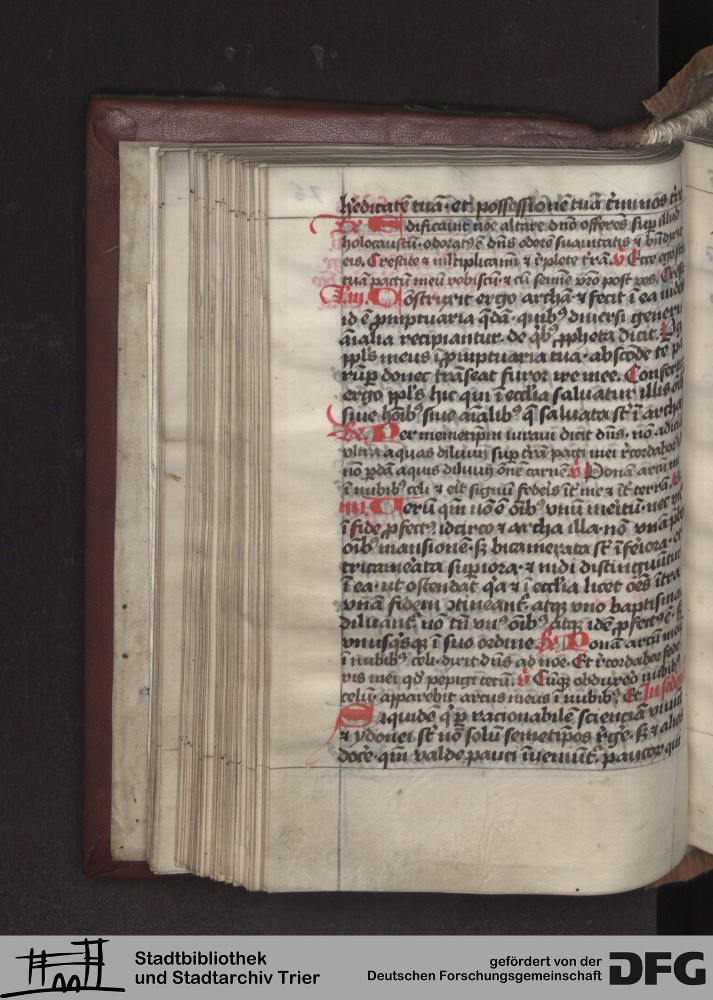 h'editatē tuā · et possessionē tuā t'minos t're
Re Edificauit noe altare dn̄o offerēs sup illud
holocaustū · odoratꝰ ē dn̄s odorē suauitatis ⁊ bn̄dixit
eis. Crescite ⁊ mltiplicamī ⁊ r'plete t'rā. v̄ Ecce ego
tuā pactū meū vobiscū · ⁊ cū semīe vr̄o post vos. Cresc
Lc̄ iij. Cōstruxit ergo archā ⁊ fecit ī ea nidos
id ē prōptuaria q̄dā · quibꝰ diuersi generis
aīalia recipiantur. de qͥbꝰ ꝓpheta dicit.
ppl's meus ī prōptuaria tua · abscōde te
rūp donec trāseat furor ire mee. Consertur
ergo ppl's hic qui ī ecclīa saluatur illis oībꝰ
siue hoībꝰ siue aīalibꝰ q̄ saluata st' ī archa
Re Per memetip̄m iuraui dicit dn̄s · nō adiciā
vltra aquas diluuij sup t'rā pacti mei r'cordabor
nō ꝑdā aquis diluuij oēm carnē v̄ Ponā arcū
ī nubibꝰ celi ⁊ erit signū federis īt' me ⁊ īt' terrā.
iiij. Uerū qm̄ nō ē oībꝰ vnū meritū · nec
ī fide ꝓfectꝰ idcirco ⁊ archa illa · nō vnā p̄bet
oībꝰ mansionē · sꝫ bicamerata st' īferiora · et
tricamerata supiora · ⁊ nidi distinguūtur
ī ea · ut ostendat qꝛ ⁊ ī ecclīa licet oēs ītra
vnā fidem ɔtineant' · atqꝫ vno baptismate
diluant' · nō tn̄ vnꝰ oībꝰ atqꝫ idē ꝓfectꝰ ē · sꝫ
vnusqͥsqꝫ ī suo ordine. Re Ponā arcū meū
ī nubibꝰ celi · dixit dn̄s ad noe · Et r'cordabor fede
ris mei qd' pepigi tecū. v̄ Cūqꝫ obduxero nubibꝰ
celū · apparebit arcus meus ī nubibꝰ. Et
Siquidē qͥ ꝑ racionabilē scienciā viuūt
⁊ ydonei st' nō solū semetip̄os r'ge · sꝫ ⁊ alios
docē · qm̄ valde pauci īueniūt' · paucor qui
Stadtbibliothek
und Stadtarchiv Trier
gefördert von der
Deutschen Forschungsgemeinschaft DFG